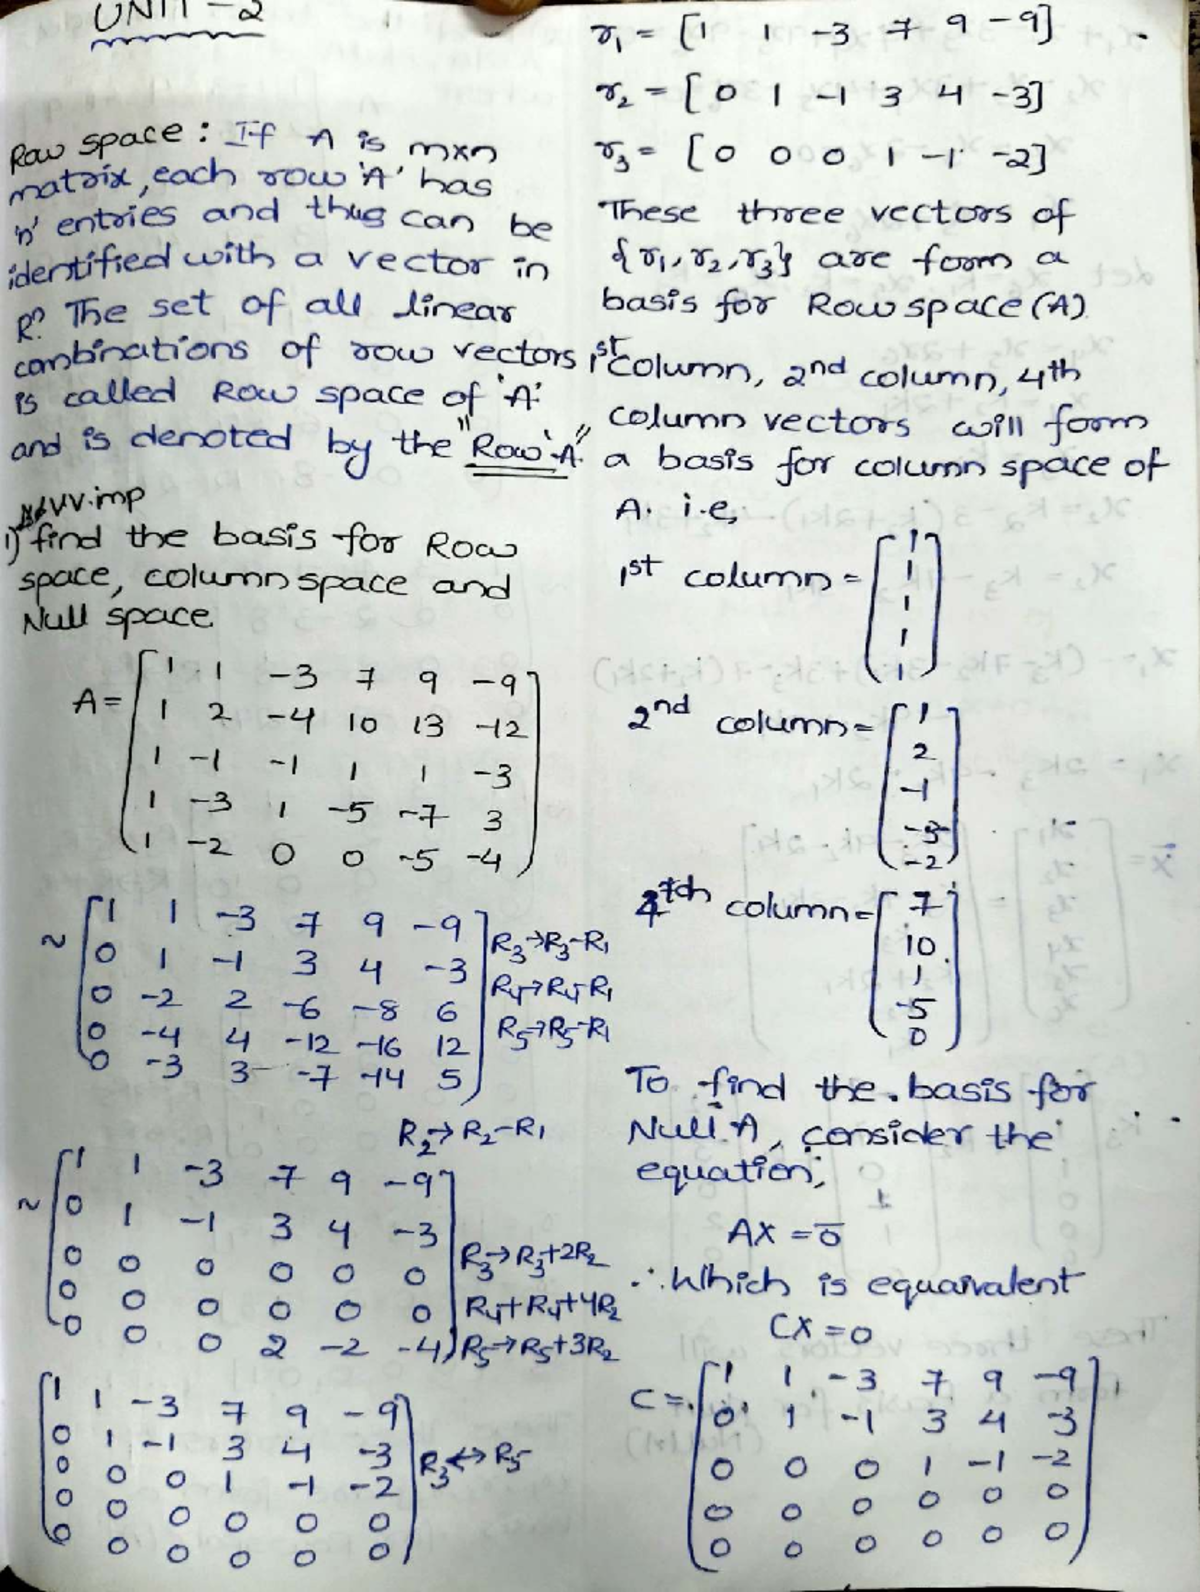 UNIT - 2
Row space : If A is mxn
matrix, each row 'A' has
'n' entries and thus can be
identified with a vector in
Rⁿ. The set of all linear
combinations of row vectors
is called Row space of 'A'.
and is denoted by the "Row 'A'"
VV.imp
1) find the basis for Row
space, column space and
Null space
A = [1 1 -3 7 9 -9
1 2 -4 10 13 -12
1 -1 -1 1 1 -3
1 -3 1 -5 -7 3
1 -2 0 0 -5 -4]
~ [1 1 -3 7 9 -9
0 1 -1 3 4 -3
0 -2 2 -6 -8 6
0 -4 4 -12 -16 12
0 -3 3 -7 -14 5]
R₃→R₃-R₁
R₄→R₄-R₁
R₅→R₅-R₁
R₂→R₂-R₁
~ [1 1 -3 7 9 -9
0 1 -1 3 4 -3
0 0 0 0 0 0
0 0 0 0 0 0
0 0 0 2 -2 -4]
R₃→R₃+2R₂
R₄+R₄+4R₂
R₅→R₅+3R₂
[1 1 -3 7 9 -9
0 1 -1 3 4 -3
0 0 0 1 -1 -2
0 0 0 0 0 0
0 0 0 0 0 0]
R₃↔R₅
r₁ = [1 1 -3 7 9 -9]
r₂ = [0 1 -1 3 4 -3]
r₃ = [0 0 0 1 -1 -2]
These three vectors of
{r₁, r₂, r₃} are form a
basis for Row space (A)
1st column, 2nd column, 4th
column vectors will form
a basis for column space of
A. i.e,
1st column = [1
1
1
1
1]
2nd column = [1
2
-1
-3
-2]
4th column = [7
10
1
-5
0]
To find the basis for
Null A, consider the
equation,
AX = 0̅
∴ Which is equaivalent
CX = 0
C = [1 1 -3 7 9 -9
0 1 -1 3 4 -3
0 0 0 1 -1 -2
0 0 0 0 0 0
0 0 0 0 0 0]